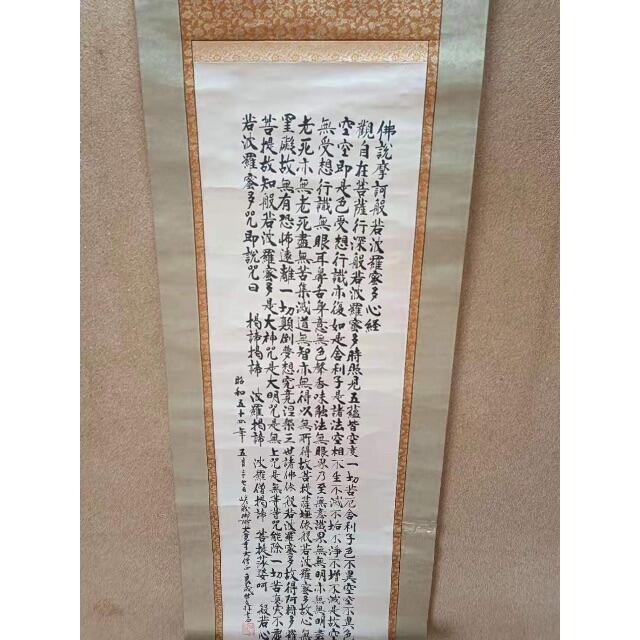 佛說摩訶般若波羅蜜多心経
觀自在菩薩行深般若波羅蜜多時照見五蘊皆空度一切苦厄舍利子色不異空空不異色
空空即是色受想行識亦復如是舍利子是諸法空相不生不滅不垢不淨不増不減是故空
無受想行識無眼耳鼻舌身意無色聲香味触法無眼界乃至無意識界無無明亦無無明盡
老死亦無老死盡無苦集滅道無智亦無得以無所得故菩提薩埵依般若波羅蜜多故心無
罣礙故無有恐怖遠離一切顛倒夢想究竟涅槃三世諸佛依般若波羅蜜多故得阿耨多羅
菩提故知般若波羅蜜多是大神咒是大明咒是無上咒是無等等咒能除一切苦真実不虚
若波羅蜜多咒即説咒曰 揭諦揭諦 波羅揭諦 波羅僧揭諦 菩提莎婆呵 般若心
昭和五十四年 五月二十七日